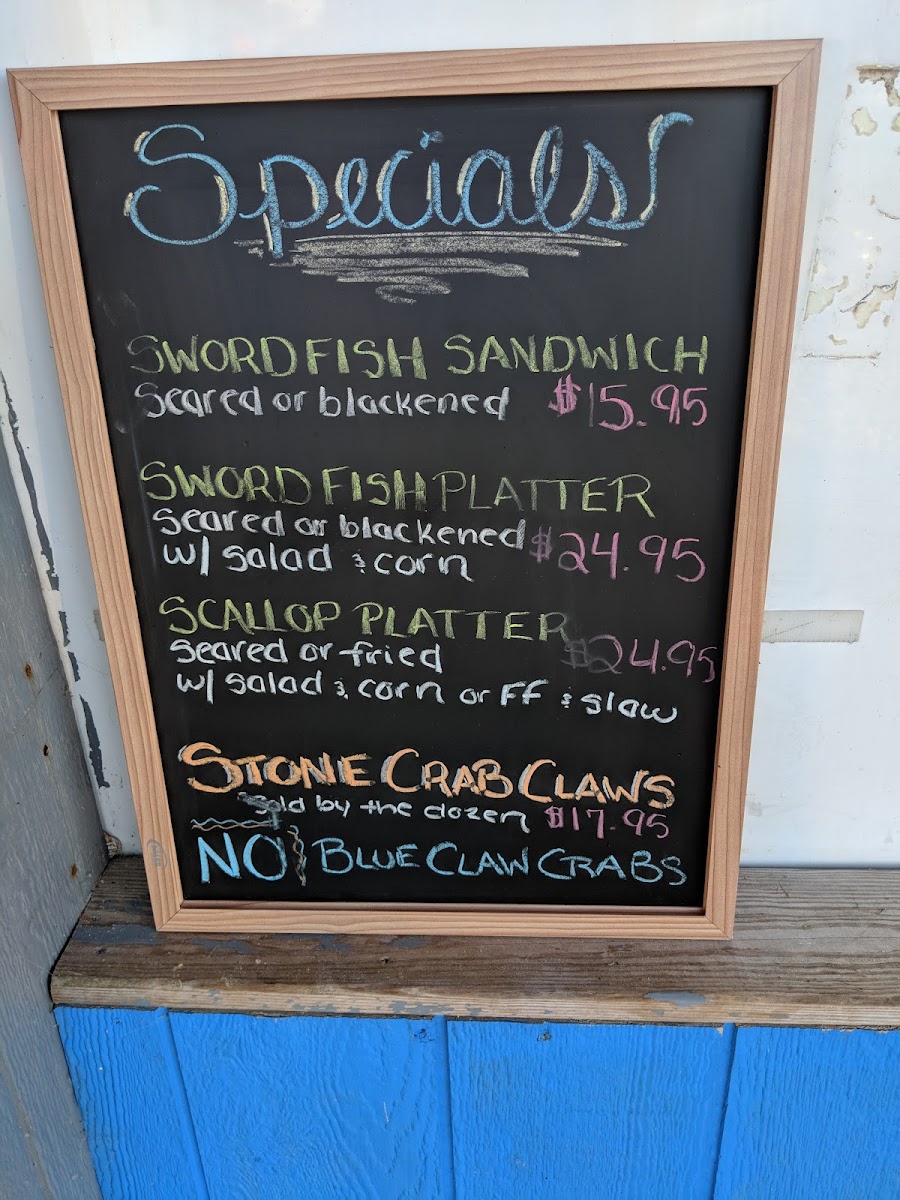 Specials
SWORDFISH SANDWICH
Seared or blackened $15.95
SWORD FISH PLATTER
Seared or blackened
w/ salad & corn $24.95
SCALLOP PLATTER
Seared or fried $24.95
w/ salad & corn or FF & slaw
STONE CRAB CLAWS
Sold by the dozen $17.95
NO BLUE CLAW CRABS